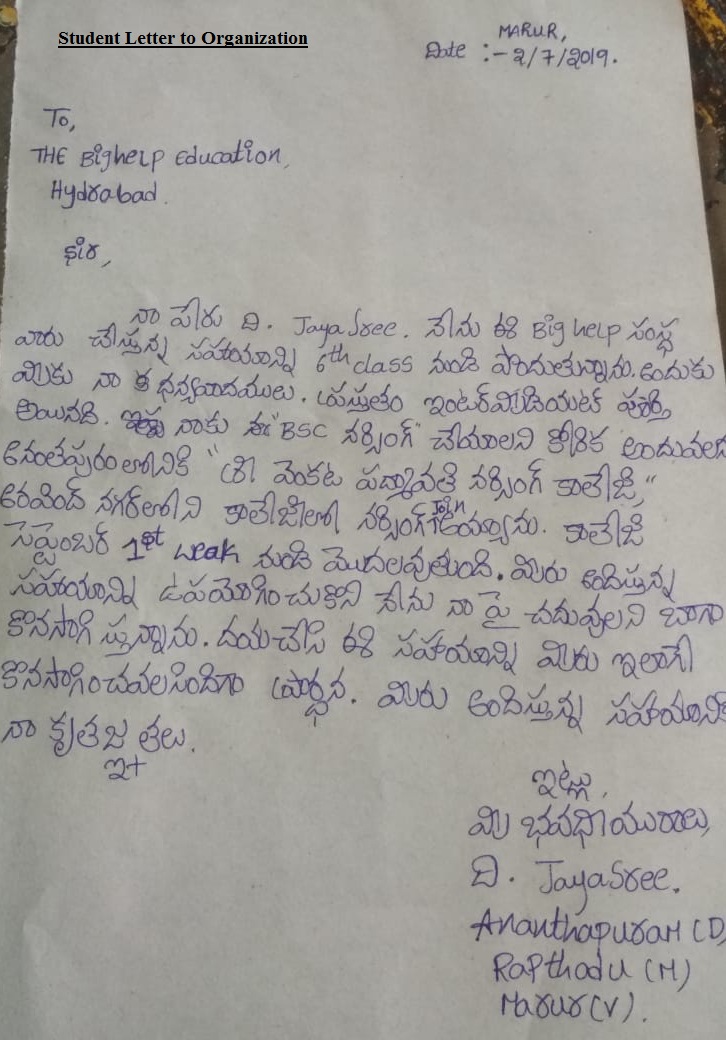 Student Letter to Organization
MARUR,
Date :- 2/7/2019.
To,
THE Bighelp Education,
Hydrabad.
సిర,
నా పేరు ది. Jaya Sree. నేను ఈ Big help సంస్థ
వారు చేస్తున్న సహాయాన్ని 6th class నుండి పొందుతున్నాను. అందుకు
మీకు నా ధన్యవాదములు. ప్రస్తుతం ఇంటర్మీడియట్ పూర్తి
అయినది. నాకు "BSC నర్సింగ్" చేయాలని కోరిక అందువలన
అనంతపురంలోనికి "శ్రీ వెంకట పద్మావతి నర్సింగ్ కాలేజి,"
అరవింద్ నగర్‌లోని కాలేజిలో నర్సింగ్ Join అయ్యాను. కాలేజి
సెప్టెంబర్ 1st weak నుండి మొదలవుతుంది. మీరు అందిస్తున్న
సహాయాన్ని ఉపయోగించుకొని నేను నా పై చదువులని బాగా
కొనసాగిస్తున్నాను. దయచేసి ఈ సహాయాన్ని మీరు ఇలాగే
కొనసాగించవలసిందిగా ప్రార్థన. మీరు అందిస్తున్న సహాయానికి
నా కృతజ్ఞతలు.
ఇట్లు,
మీ భవధీయురాలు,
ది. JayaSree.
Ananthapuram (D)
Rapthadu (M)
Marur (V).